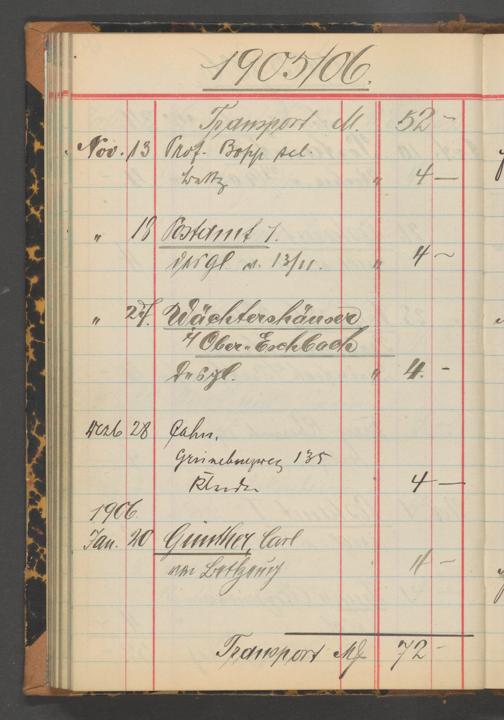 1905/06.
Transport M. 52 -
Nov. 13 Prof. Bopp sel.
" 4 —
" 18 Postamt 1.
desgl. v. 13/11. " 4 ~
" 27. Wächtershäuser
i/ Ober-Eschbach
Desgl. " 4. -
Dezb 28 Cahn,
Grüneburgweg 135
4 —
1906.
Jan. 20 Günther, Carl
4 -
Transport M 72 -